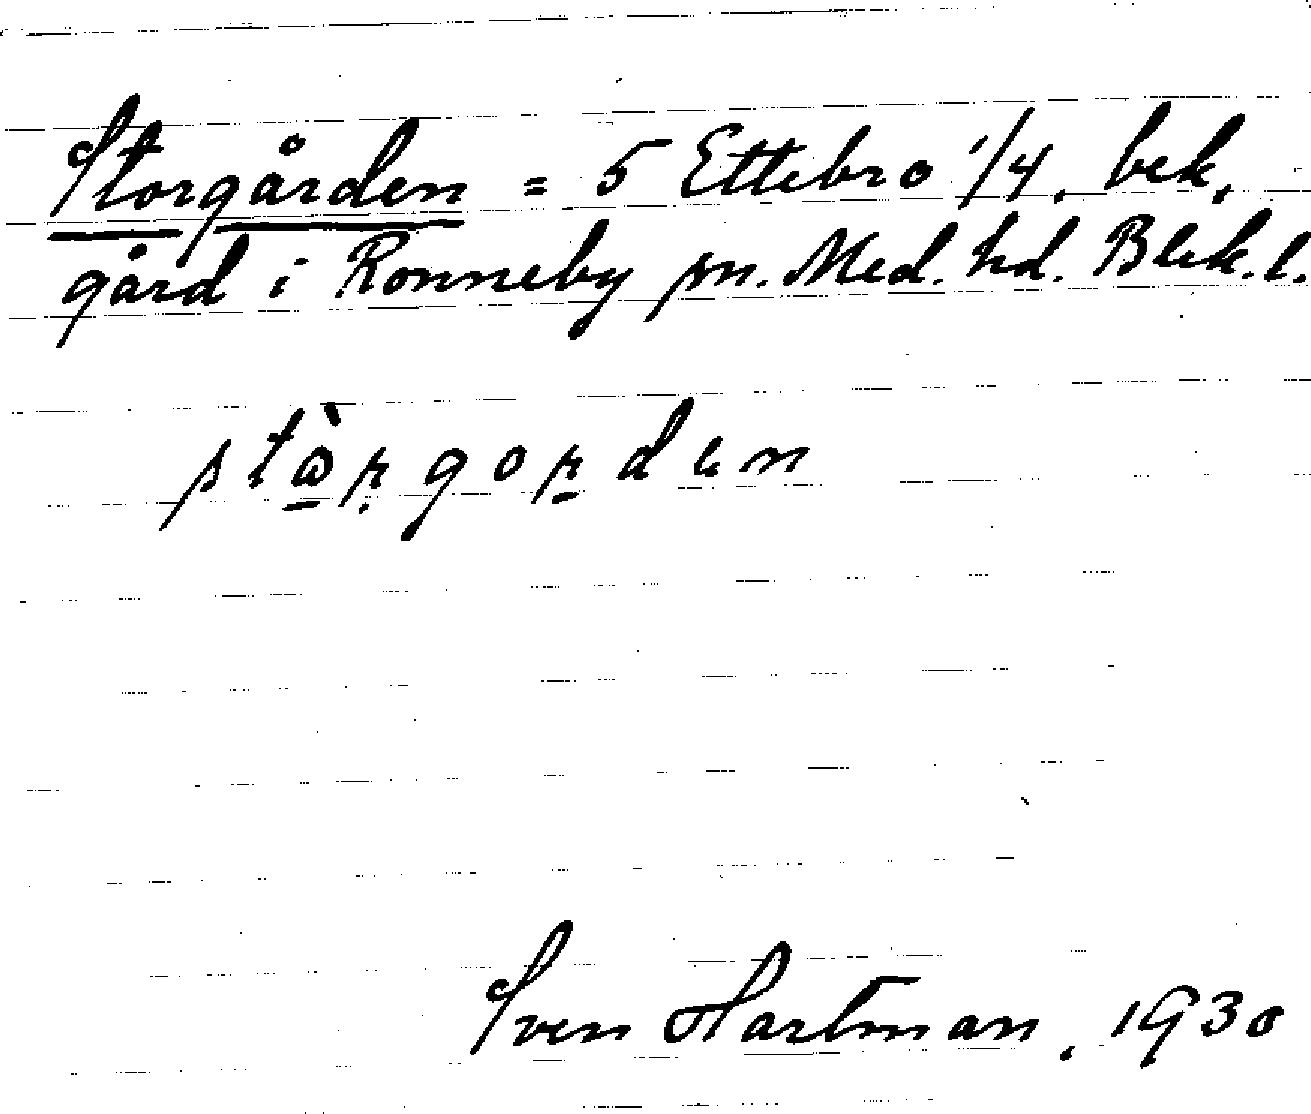 Storgården = 5 Ettebro 1/4, bek.
gård i Ronneby sn. Med. hd. Blek. l.
stòrgorden
Sven Hartman, 1930